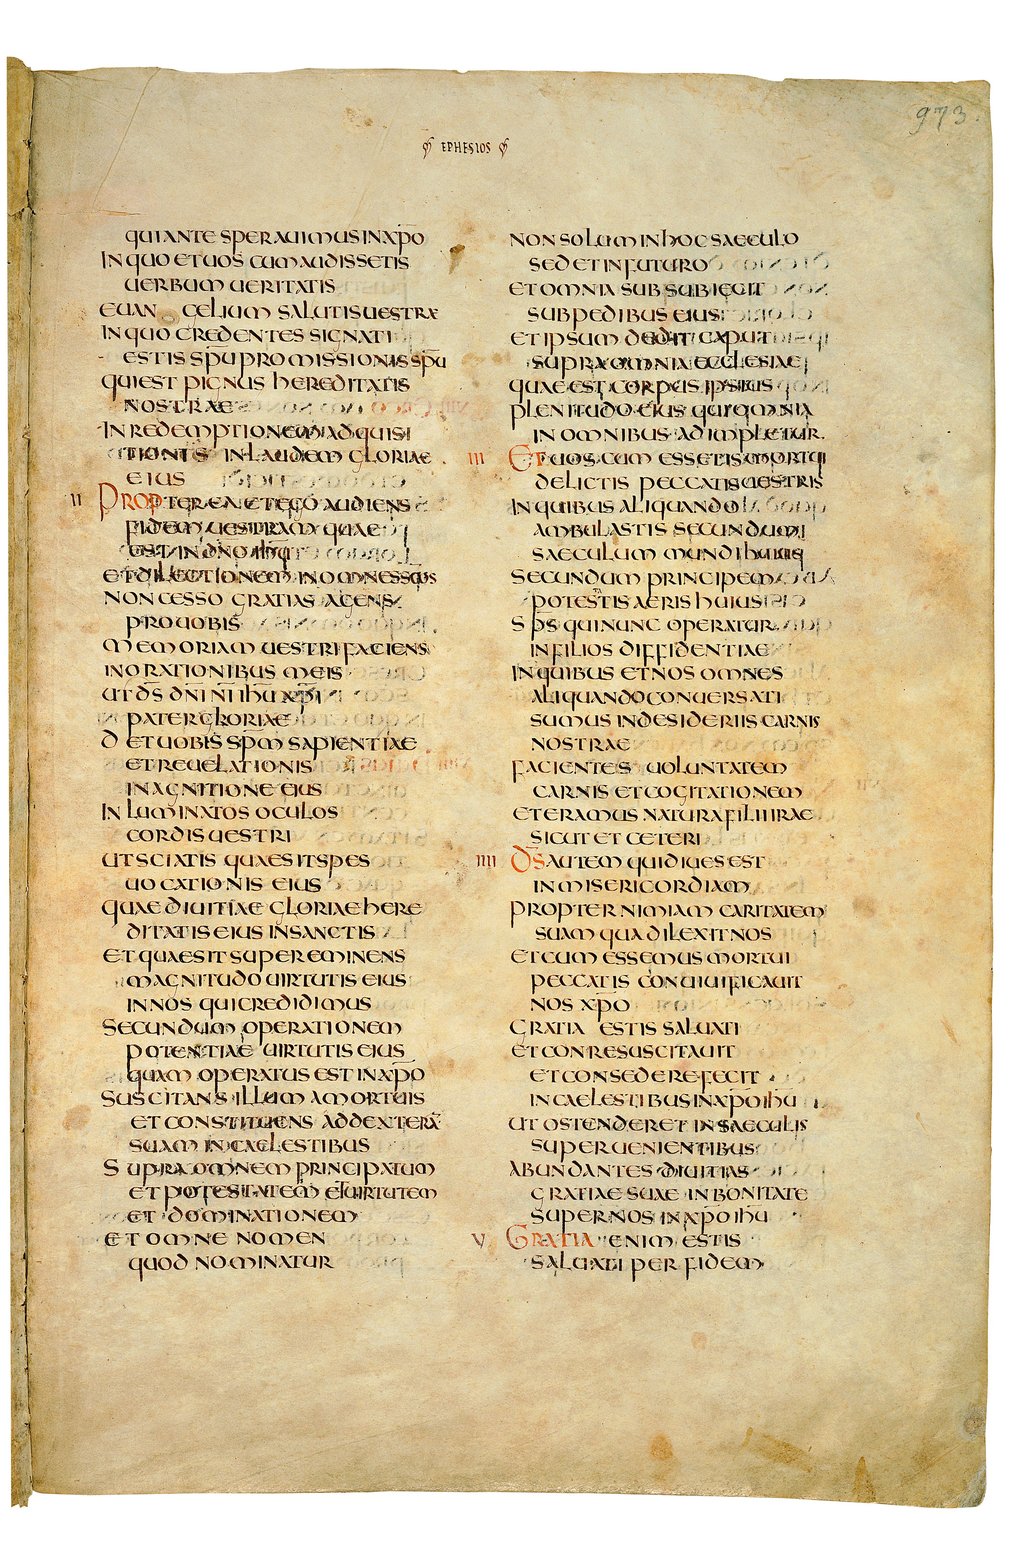 EPHESIOS
973
QUI ANTE SPERAUIMUS IN XP̅O
IN QUO ET UOS CUM AUDISSETIS
UERBUM UERITATIS
EUANGELIUM SALUTIS UESTRAE
IN QUO CREDENTES SIGNATI
ESTIS SP̅U PROMISSIONIS SP̅U
QUI EST PIGNUS HEREDITATIS
NOSTRAE
IN REDEMPTIONEM ADQUISI
TIONIS IN LAUDEM GLORIAE
EIUS
II PROPTEREA ET EGO AUDIENS
FIDEM UESTRAM QUAE
EST IN DN̅O IH̅U
ET DILECTIONEM IN OMNES SC̅OS
NON CESSO GRATIAS AGENS
PRO UOBIS
MEMORIAM UESTRI FACIENS
IN ORATIONIBUS MEIS
UT D̅S DN̅I N̅I IH̅U XP̅I
PATER GLORIAE
DET UOBIS SP̅M SAPIENTIAE
ET REUELATIONIS
IN AGNITIONE EIUS
INLUMINATOS OCULOS
CORDIS UESTRI
UT SCIATIS QUAE SIT SPES
UOCATIONIS EIUS
QUAE DIUITIAE GLORIAE HERE
DITATIS EIUS IN SANCTIS
ET QUAE SIT SUPEREMINENS
MAGNITUDO UIRTUTIS EIUS
IN NOS QUI CREDIDIMUS
SECUNDUM OPERATIONEM
POTENTIAE UIRTUTIS EIUS
QUAM OPERATUS EST IN XP̅O
SUSCITANS ILLUM A MORTUIS
ET CONSTITUENS AD DEXTERA̅
SUAM IN CAELESTIBUS
SUPRA OMNEM PRINCIPATUM
ET POTESTATEM ET UIRTUTEM
ET DOMINATIONEM
ET OMNE NOMEN
QUOD NOMINATUR
NON SOLUM IN HOC SAECULO
SED ET IN FUTURO
ET OMNIA SUB SUBIECIT
SUB PEDIBUS EIUS
ET IPSUM DEDIT CAPUT
SUPRA OMNIA ECCLESIAE
QUAE EST CORPUS IPSIUS
PLENITUDO EIUS QUI OMNIA
IN OMNIBUS ADIMPLETUR
III ET UOS CUM ESSETIS MORTUI
DELICTIS PECCATIS UESTRIS
IN QUIBUS ALIQUANDO
AMBULASTIS SECUNDUM
SAECULUM MUNDI HUIUS
SECUNDUM PRINCIPEM
POTESTATIS AERIS HUIUS
SP̅S QUI NUNC OPERATUR
IN FILIOS DIFFIDENTIAE
IN QUIBUS ET NOS OMNES
ALIQUANDO CONUERSATI
SUMUS IN DESIDERIIS CARNIS
NOSTRAE
FACIENTES UOLUNTATEM
CARNIS ET COGITATIONEM
ET ERAMUS NATURA FILII IRAE
SICUT ET CETERI
IIII D̅S AUTEM QUI DIUES EST
IN MISERICORDIAM
PROPTER NIMIAM CARITATEM
SUAM QUA DILEXIT NOS
ET CUM ESSEMUS MORTUI
PECCATIS CONUIUIFICAUIT
NOS XP̅O
GRATIA ESTIS SALUATI
ET CONRESUSCITAUIT
ET CONSEDERE FECIT
IN CAELESTIBUS IN XP̅O IH̅U
UT OSTENDERET IN SAECULIS
SUPERUENIENTIBUS
ABUNDANTES DIUITIAS
GRATIAE SUAE IN BONITATE
SUPER NOS IN XP̅O IH̅U
V GRATIA ENIM ESTIS
SALUATI PER FIDEM